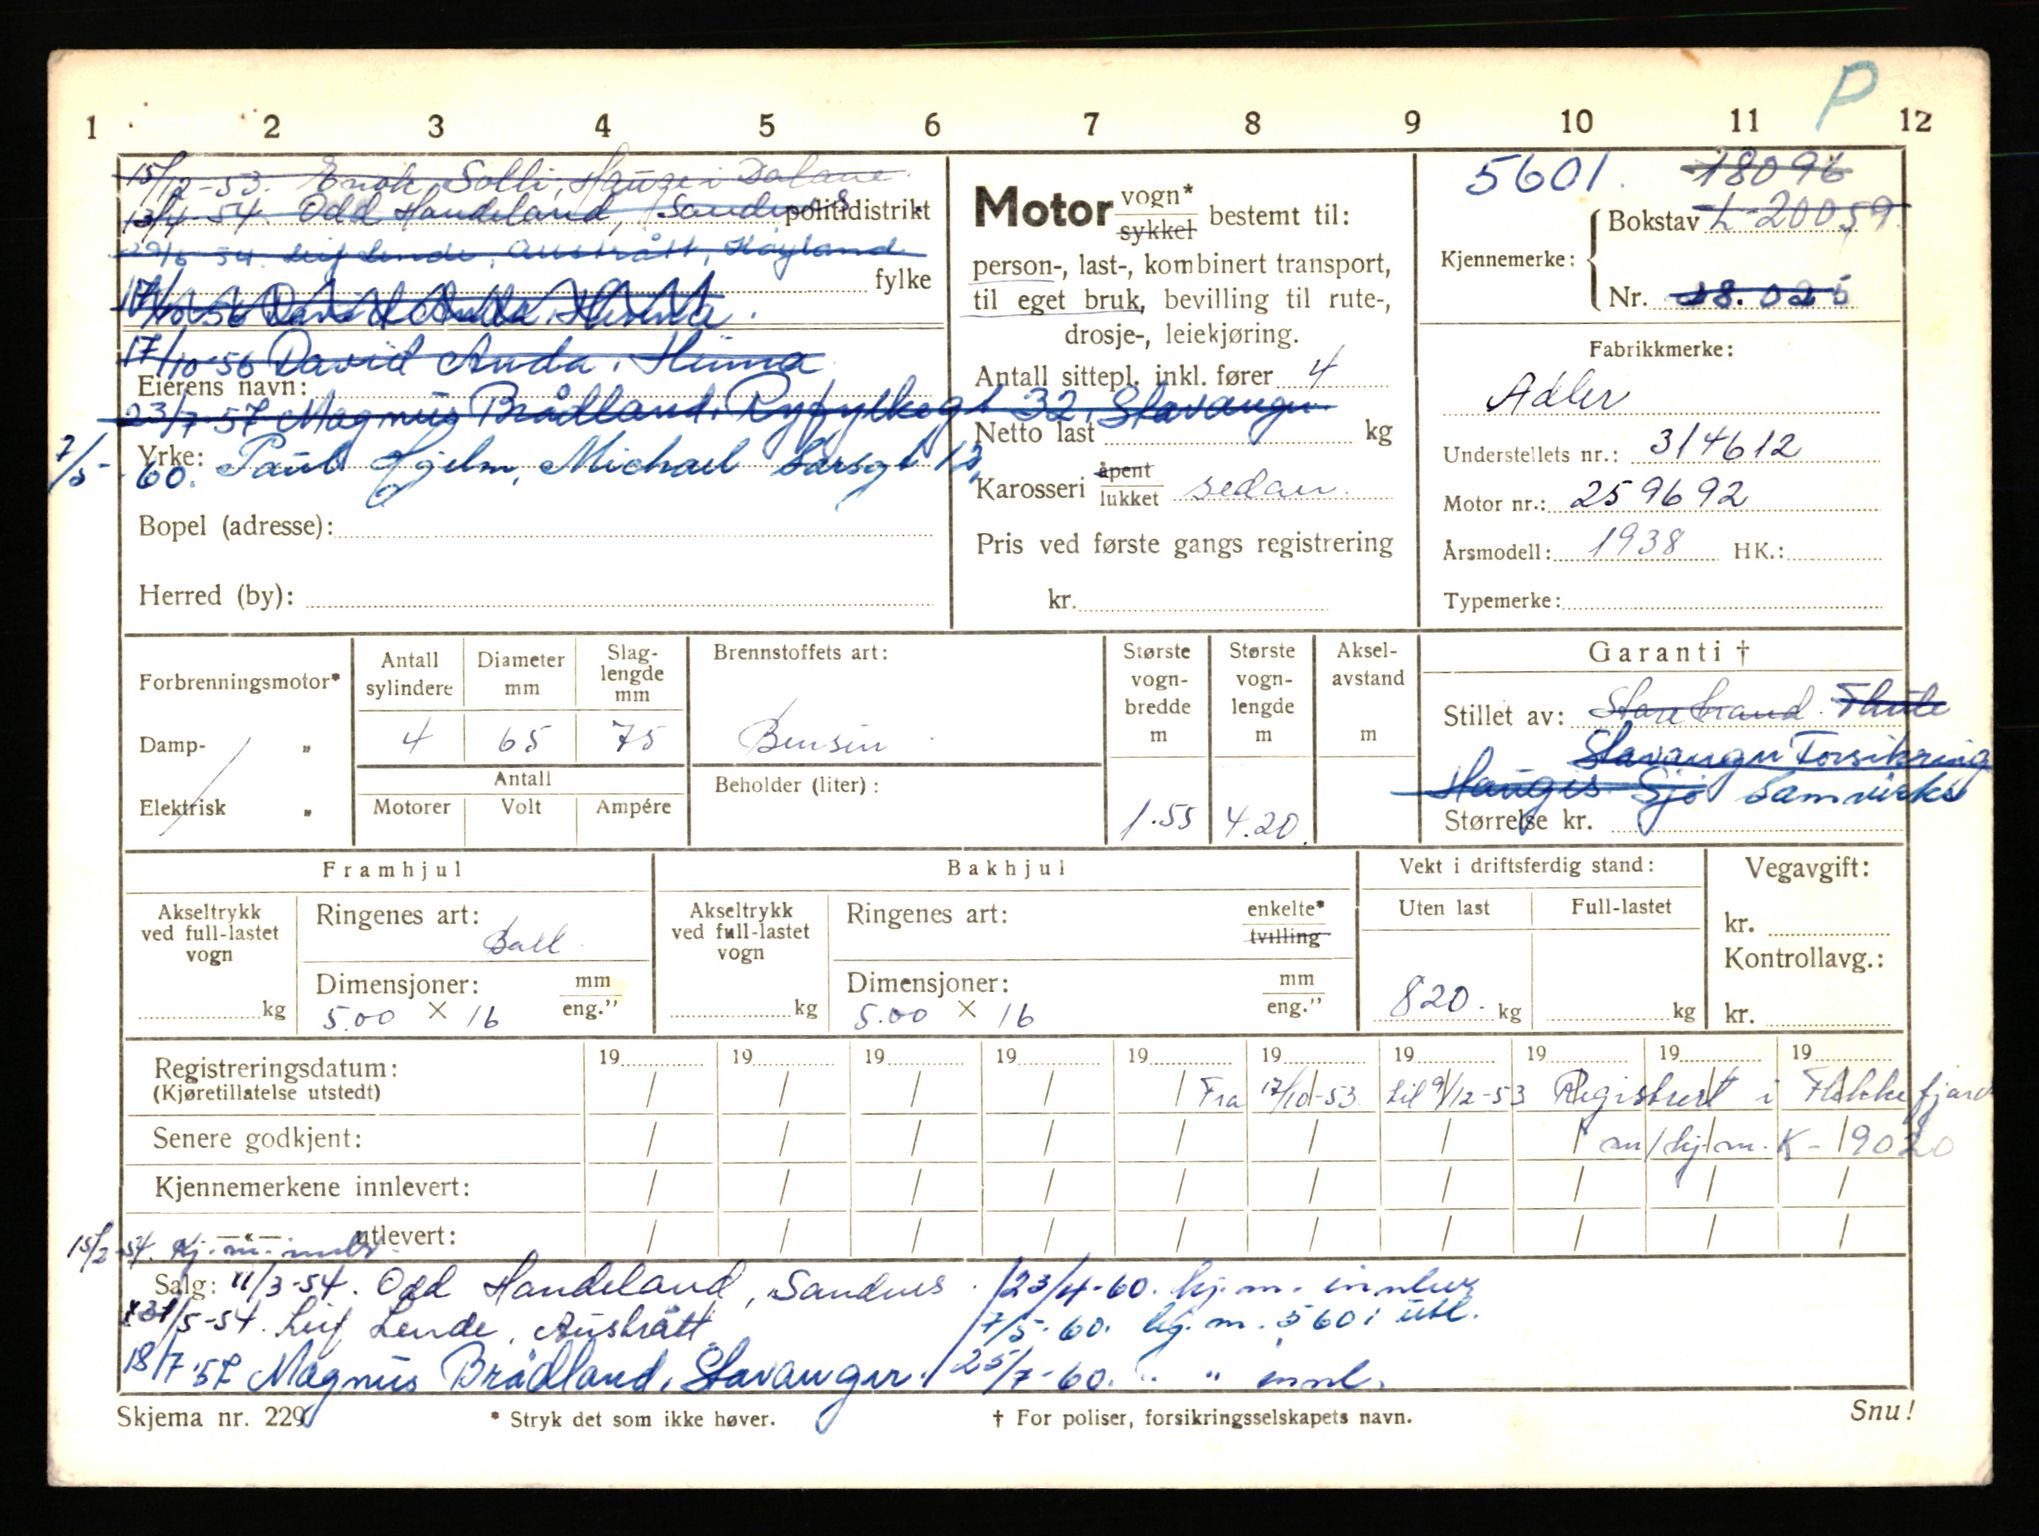 P
1 2 3 4 5 6 7 8 9 10 11 12
15/12-53. Enok Solli, Hauge i Dalane
13/4-54. Odd Handeland, Sandnes politidistrikt
29/6 54. Leif Lende, Austrått, Høyland
fylke
17/10-56 David Anda, Hinna.
17/10-56 David Anda, Hinna
Eierens navn:
23/7-57 Magnus Brådland, Ryfylkegt 32, Stavanger
Yrke:
7/5-60. Paul Hjelm, Michael Sarsgt 12,
Bopel (adresse):
Herred (by):
Motor vogn* sykkel bestemt til:
person-, last-, kombinert transport,
til eget bruk, bevilling til rute-,
drosje-, leiekjøring.
Antall sittepl. inkl. fører 4
Netto last kg
Karosseri åpent lukket sedan
Pris ved første gangs registrering
kr.
5601. 18096
Kjennemerke: Bokstav L-20059
Nr. 18.025
Fabrikkmerke:
Adler
Understellets nr.: 314612
Motor nr.: 259692
Årsmodell: 1938 HK.:
Typemerke:
Forbrenningsmotor*
Damp- „
Elektrisk „
Antall sylindere Diameter mm Slag-lengde mm
4 65 75
Antall
Motorer Volt Ampére
Brennstoffets art:
Bensin
Beholder (liter):
Største vogn-bredde m
1.55
Største vogn-lengde m
4.20
Aksel-avstand m
Garanti †
Stillet av: Storebrand Thule
Stavanger Forsikring
Haugis. Sjø Samvirke
Størrelse kr.
Framhjul
Akseltrykk ved full-lastet vogn kg
Ringenes art: Ball
Dimensjoner: mm eng."
5.00 × 16
Bakhjul
Akseltrykk ved full-lastet vogn kg
Ringenes art: enkelte* tvilling
Dimensjoner: mm eng."
5.00 × 16
Vekt i driftsferdig stand:
Uten last Full-lastet
820. kg kg
Vegavgift:
kr.
Kontrollavg.:
kr.
19 19 19 19 19 19 19 19 19 19
Registreringsdatum:
(Kjøretillatelse utstedt)
Fra 17/10-53 til 9/12-53 Registrert i Flekkefjord
Senere godkjent:
m/kj.m. K-19020
Kjennemerkene innlevert:
—«— utlevert:
15/2-54. Kj.m. innlev.
Salg: 11/3-54. Odd Handeland, Sandnes.
31/5-54. Leif Lende, Austrått
18/7 57 Magnus Brådland, Stavanger.
23/4-60. kj.m. innlev
7/5-60. kj.m. 5601 utl.
25/7-60. " " innl.
Skjema nr. 229
* Stryk det som ikke høver.
† For poliser, forsikringsselskapets navn.
Snu!